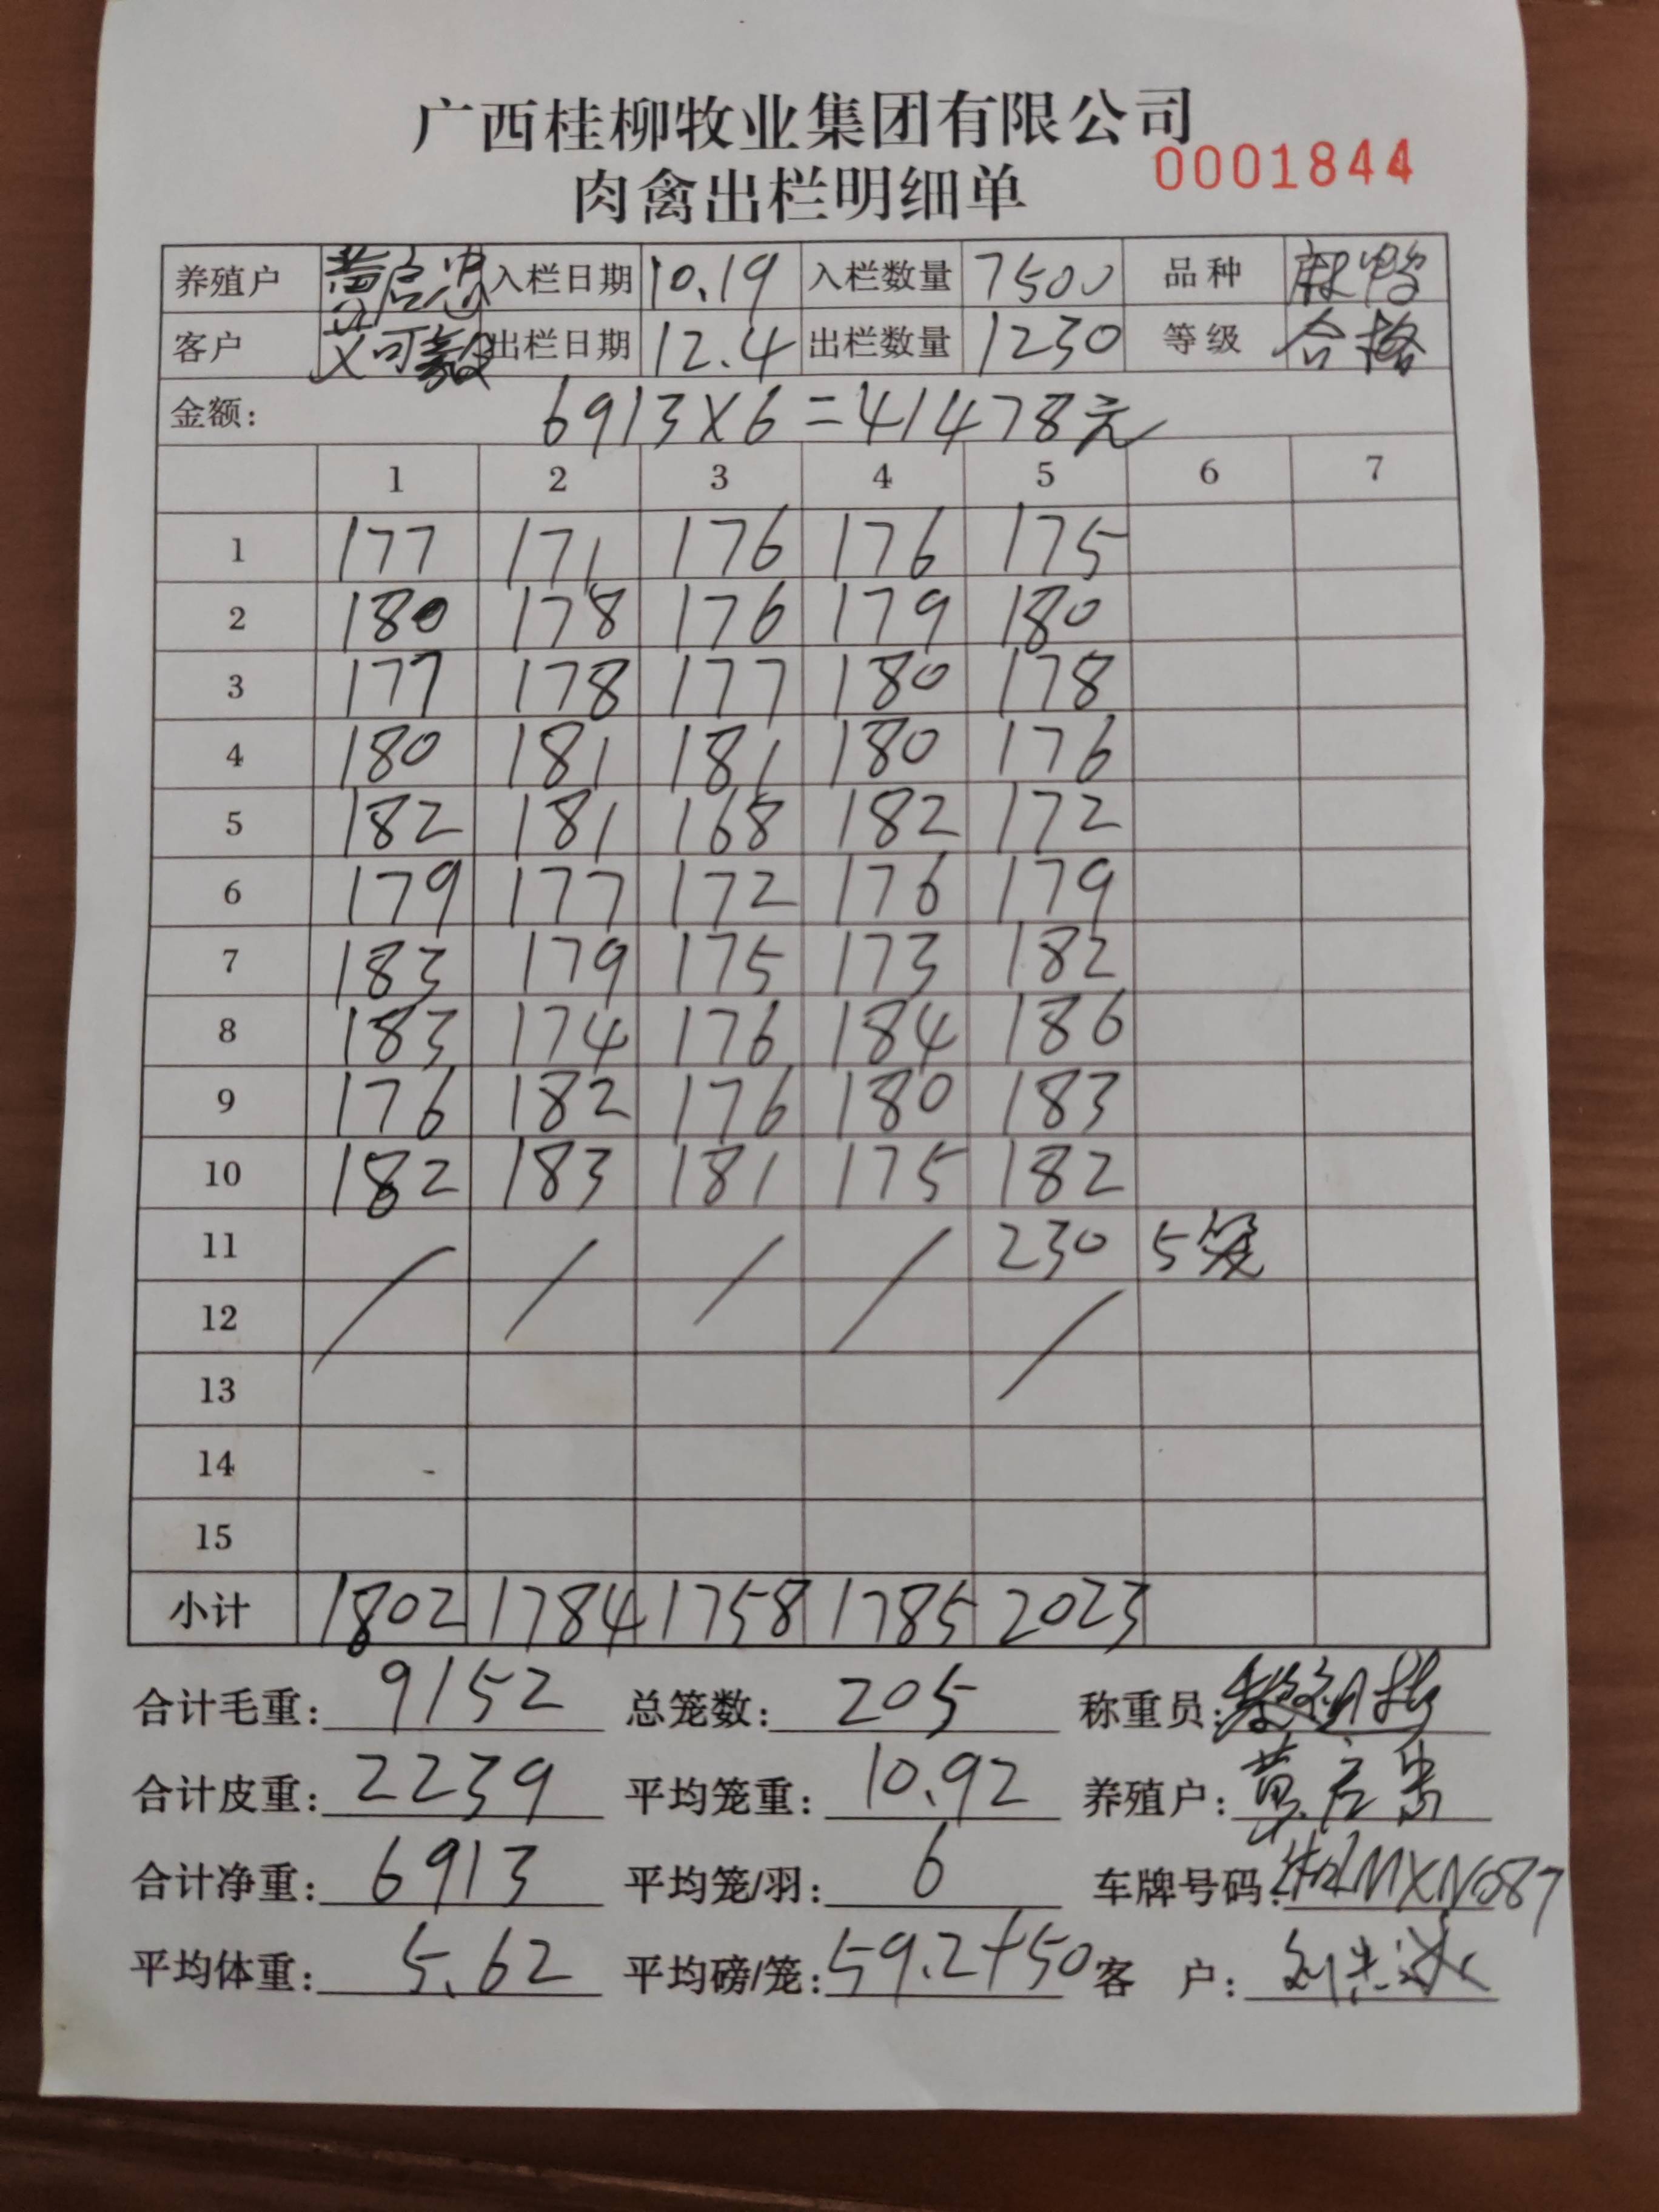 广西桂柳牧业集团有限公司
肉禽出栏明细单 0001844
养殖户 黄启忠 入栏日期 10.19 入栏数量 7500 品种 麻鸭
客户 艾可毅 出栏日期 12.4 出栏数量 1230 等级 合格
金额: 6913X6=41478元
1 2 3 4 5 6 7
1 177 171 176 176 175
2 180 178 176 179 180
3 177 178 177 180 178
4 180 181 181 180 176
5 182 181 168 182 172
6 179 177 172 176 179
7 183 179 175 173 182
8 183 174 176 184 186
9 176 182 176 180 183
10 182 183 181 175 182
11 / / / / 230 5笼
12 /
13
14
15
小计 1802 1784 1758 1785 2023
合计毛重: 9152 总笼数: 205 称重员:
合计皮重: 2239 平均笼重: 10.92 养殖户: 黄启忠
合计净重: 6913 平均笼/羽: 6 车牌号码: MXN087
平均体重: 5.62 平均磅/笼: 59.2+50 客 户: